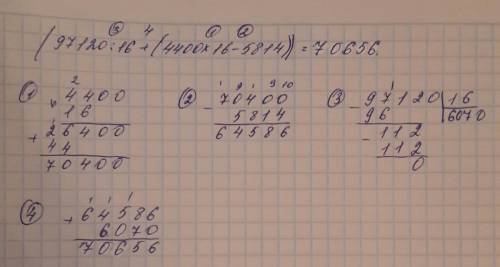 ③ 4 ① ②
(97120:16+(4400×16-5814))=70656
① 2
4400
× 16
+ 26400
44
70400
② 1 9 1 9 10
- 70400
5814
64586
③ 1
- 97120 | 16
96 | 6070
- 112
112
0
④ 1 1 1
+ 64586
6070
70656